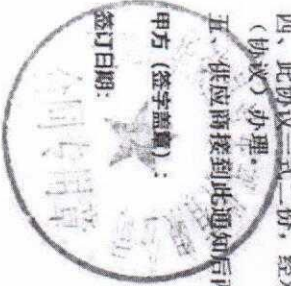 四、此协议一式二份，经
（协议）办理。
五、供应商接到此通知后
甲方（签字盖章）：
签订日期：
合同专用章